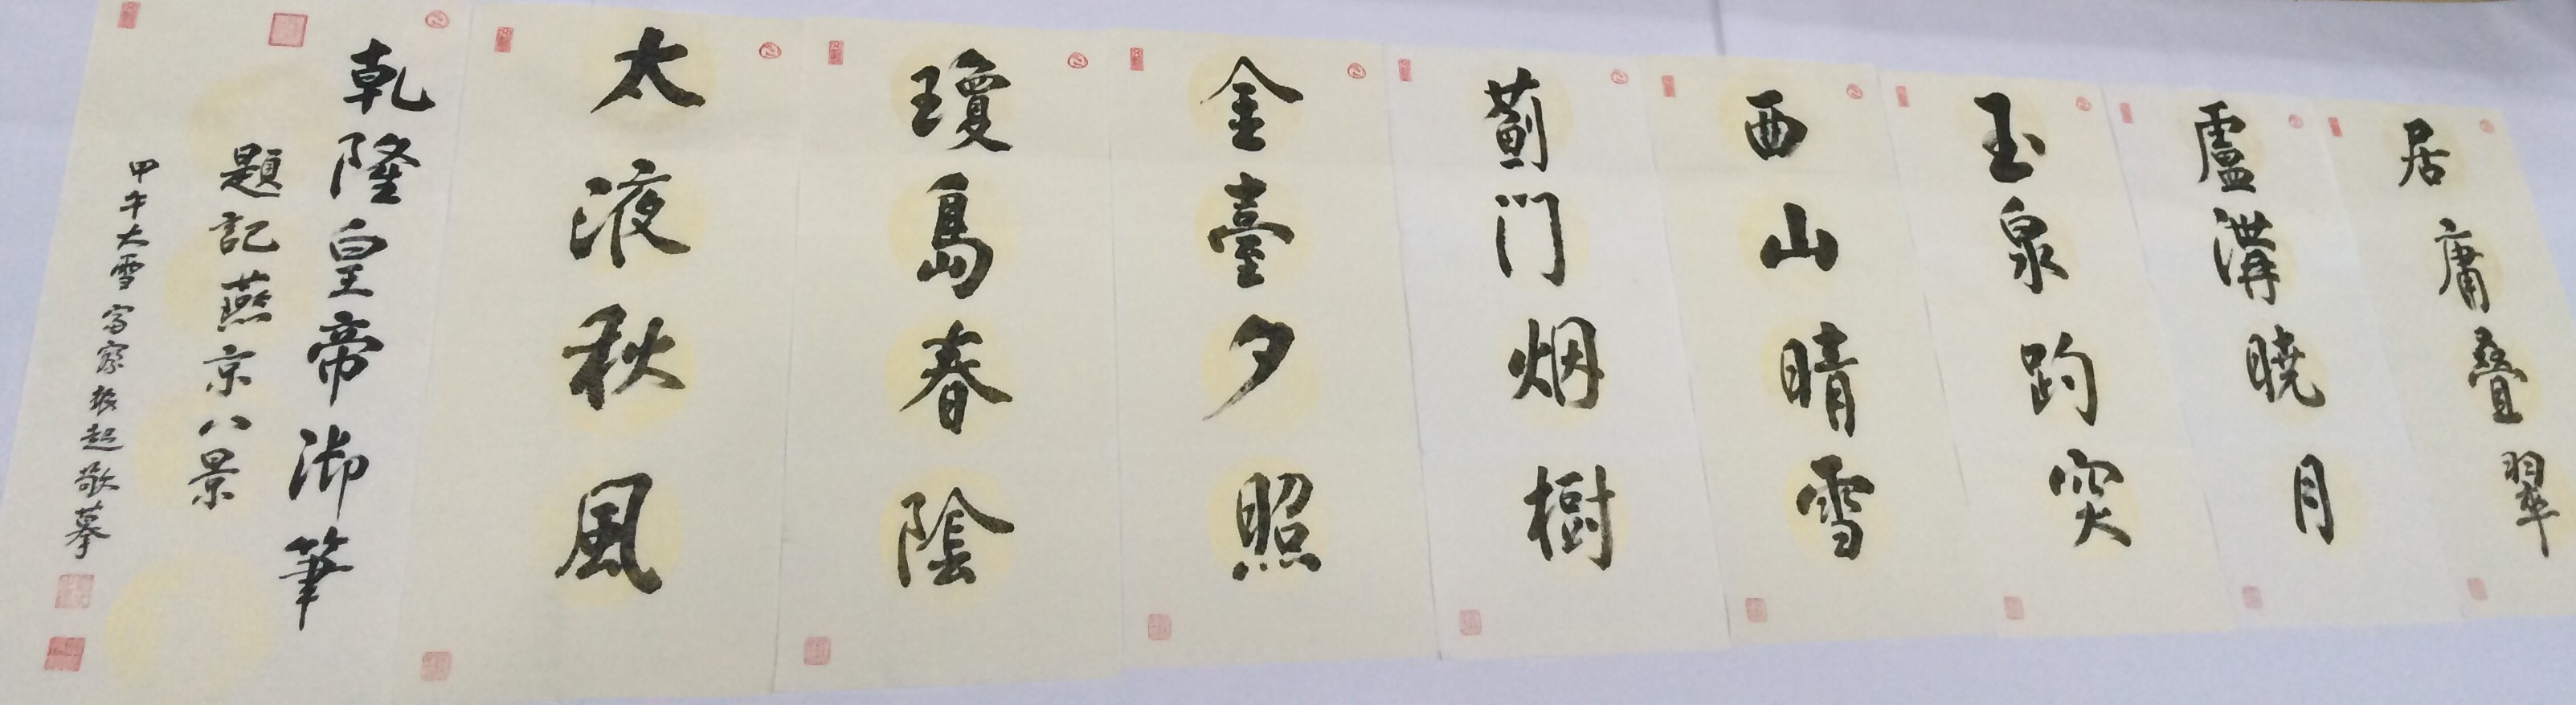 居庸叠翠
盧溝曉月
玉泉趵突
西山晴雪
薊门烟樹
金臺夕照
瓊島春陰
太液秋風
乾隆皇帝御筆
題記燕京八景
甲午大雪富察振起敬摹